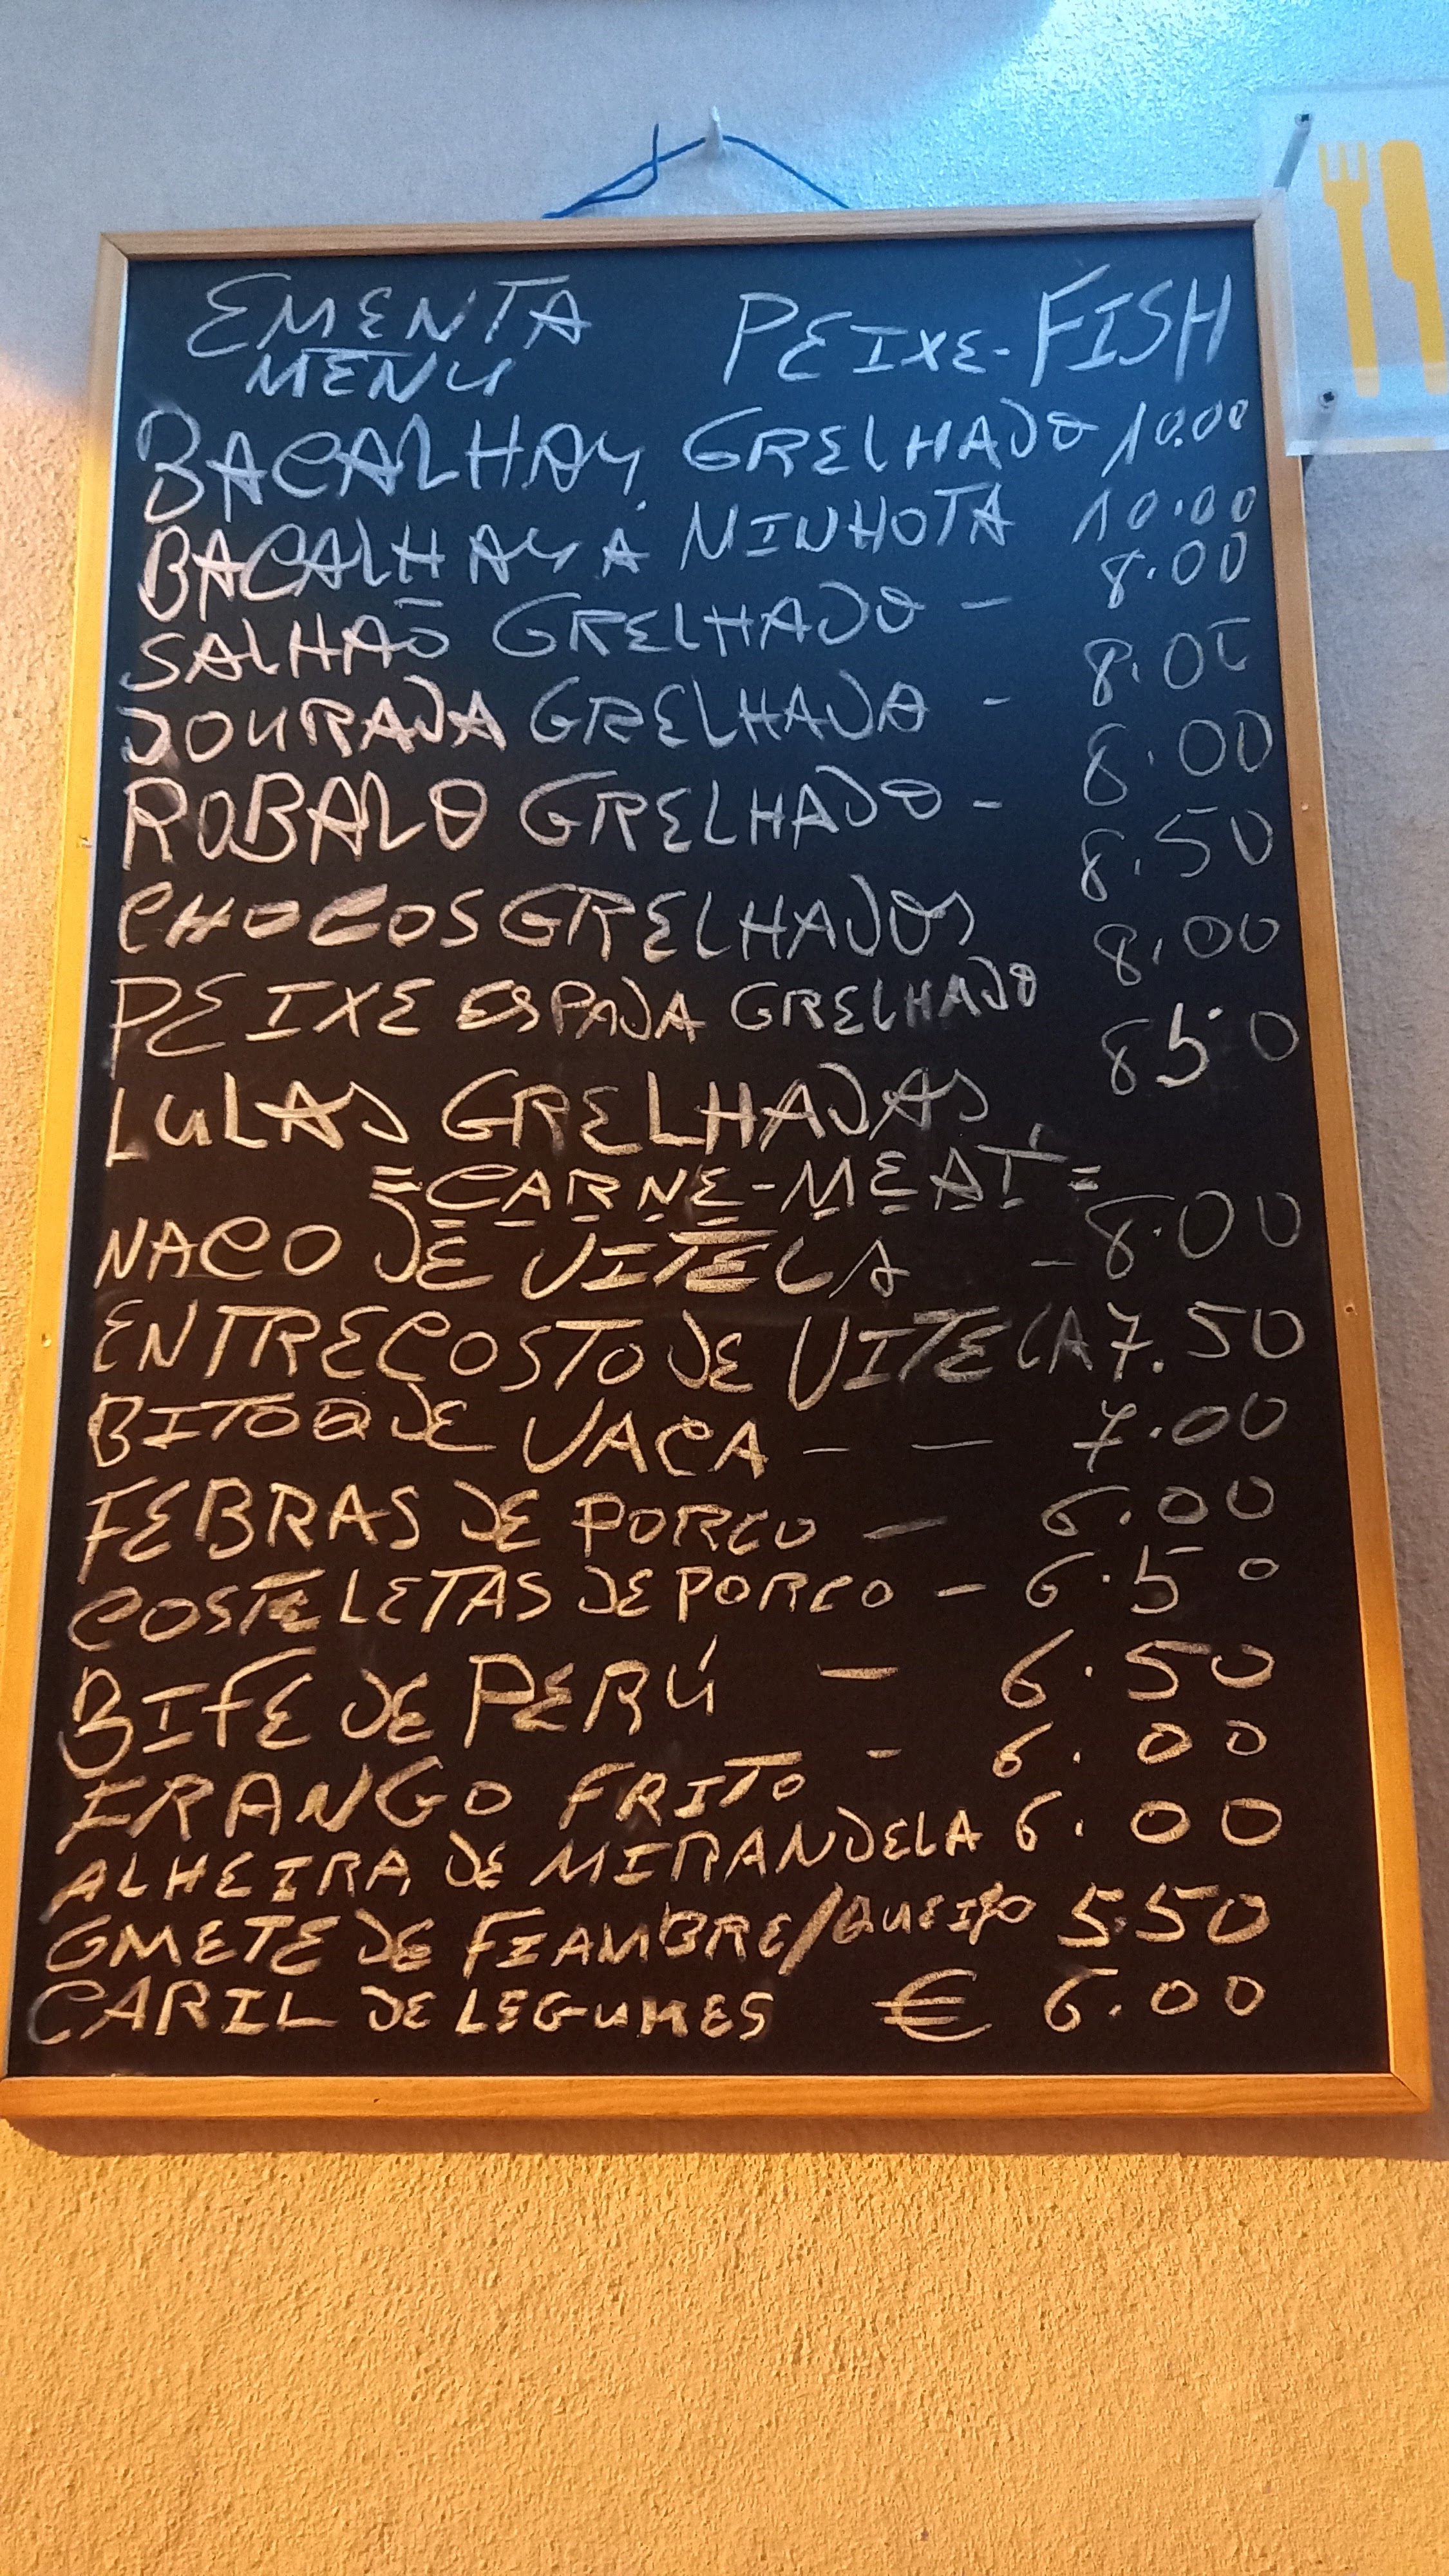 EMENTA PEIXE-FISH
MENU
BACALHAU GRELHADO 10.00
BACALHAU Á MINHOTA 10.00
SALHAÕ GRELHADO - 8.00
DOURADA GRELHADA - 8.00
ROBALO GRELHADO - 8.00
CHOCOS GRELHADOS 8.50
PEIXE ESPADA GRELHADO 8.00
LULAS GRELHADAS 8.50
=CARNE-MEAT=
NACO DE VITELA - 8.00
ENTRECOSTO DE VITELA 7.50
BITOQ DE VACA - - 7.00
FEBRAS DE PORCO - 6.00
COSTELETAS DE PORCO - 6.50
BIFE DE PERÚ - 6.50
FRANGO FRITO - 6.00
ALHEIRA DE MIRANDELA 6.00
OMETE DE FIAMBRE/QUEIJO 5.50
CARIL DE LEGUMES € 6.00